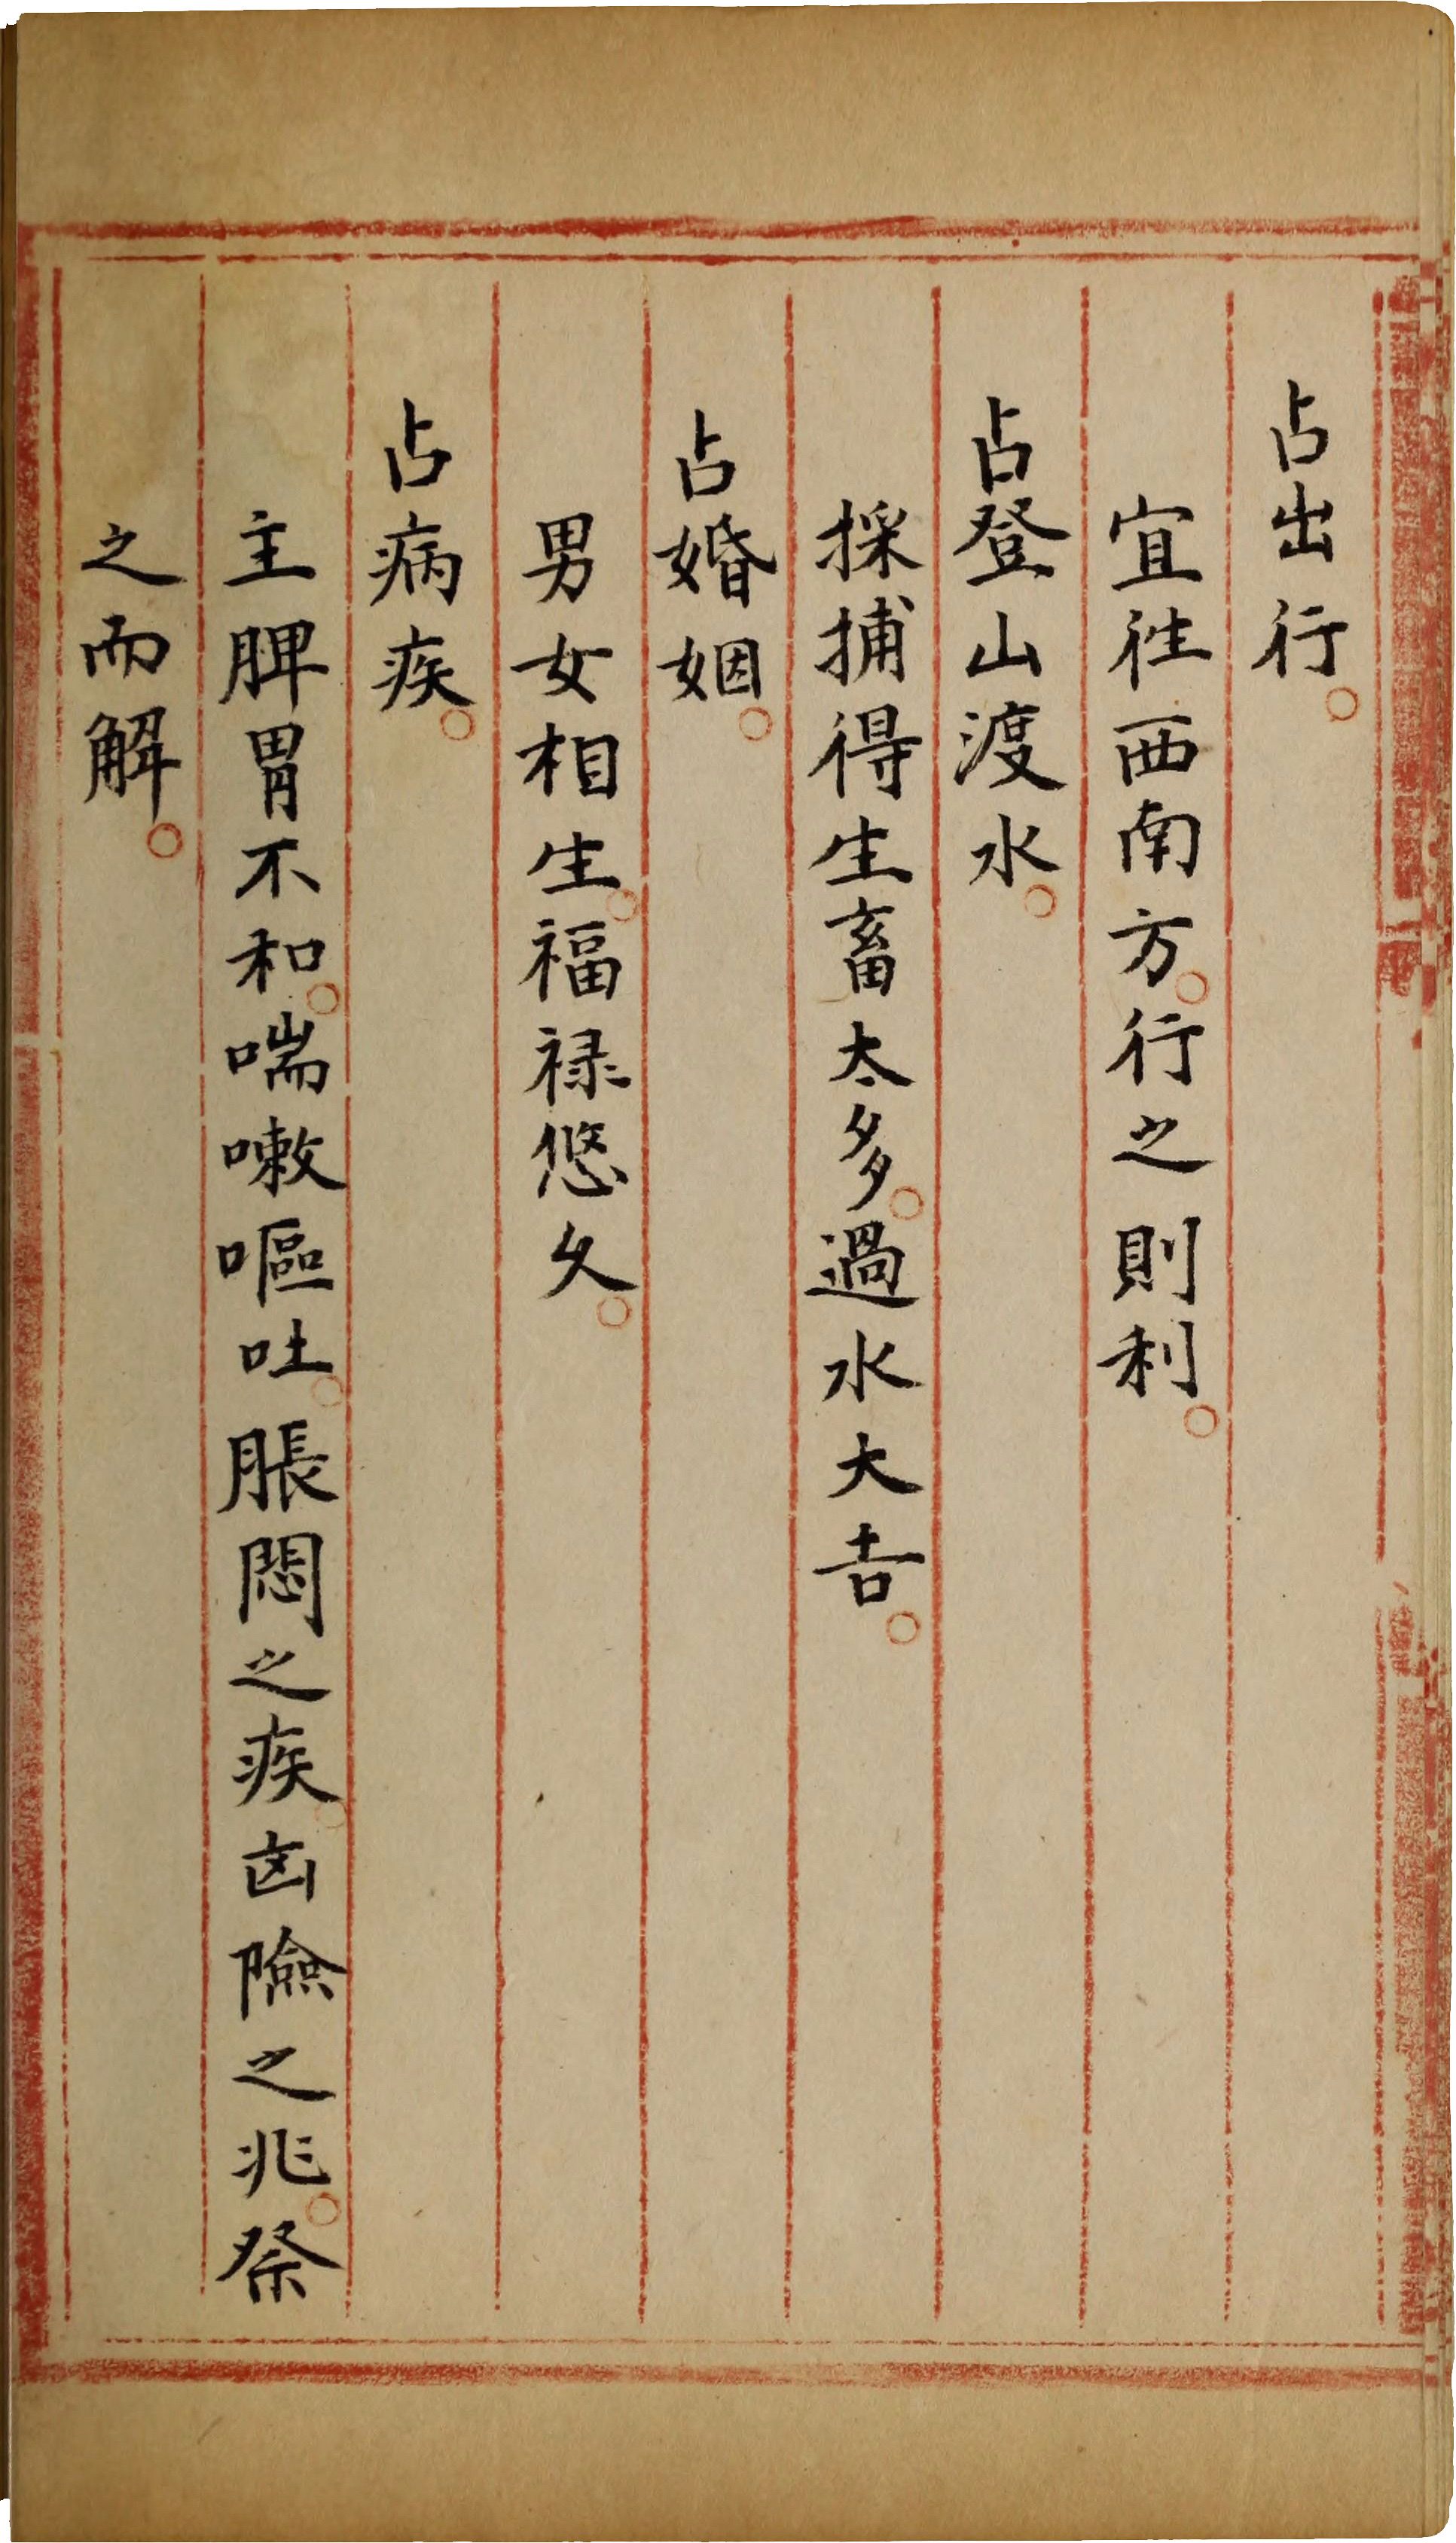 占出行。
宜往西南方。行之則利。
占登山渡水。
採捕得生畜太多。過水大吉。
占婚姻。
男女相生。福禄悠久。
占病疾。
主脾胃不和。喘嗽嘔吐。脹悶之疾。凶險之兆。祭
之而解。